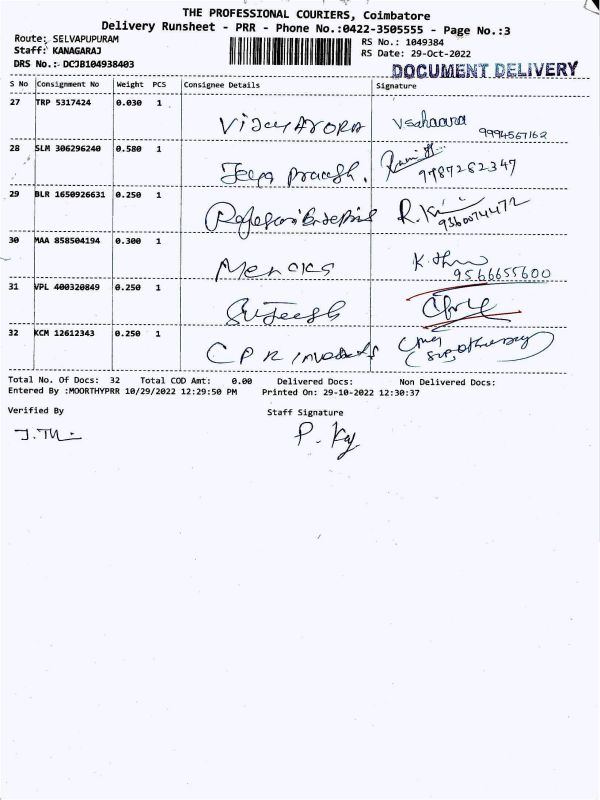 THE PROFESSIONAL COURIERS, Coimbatore
Delivery Runsheet - PRR - Phone No.:0422-3505555 - Page No.:3
Route: SELVAPUPURAM
RS No.: 1049384
Staff: KANAGARAJ
RS Date: 29-Oct-2022
DRS No.:- DCJB104938403
DOCUMENT DELIVERY
S No Consignment No Weight PCS Consignee Details Signature
27 TRP 5317424 0.030 1
Vijay Arora
9994567162
28 SLM 306296240 0.580 1
Jeya Prakash.
9787262347
29 BLR 1650926631 0.250 1
R.K
9360074472
30 MAA 858504194 0.300 1
K.
9566655600
31 VPL 400320849 0.250 1
Sujeesh
32 KCM 12612343 0.250 1
CPR
Total No. Of Docs: 32 Total COD Amt: 0.00 Delivered Docs: Non Delivered Docs:
Entered By :MOORTHYPRR 10/29/2022 12:29:50 PM Printed On: 29-10-2022 12:30:37
Verified By Staff Signature
P. Raj